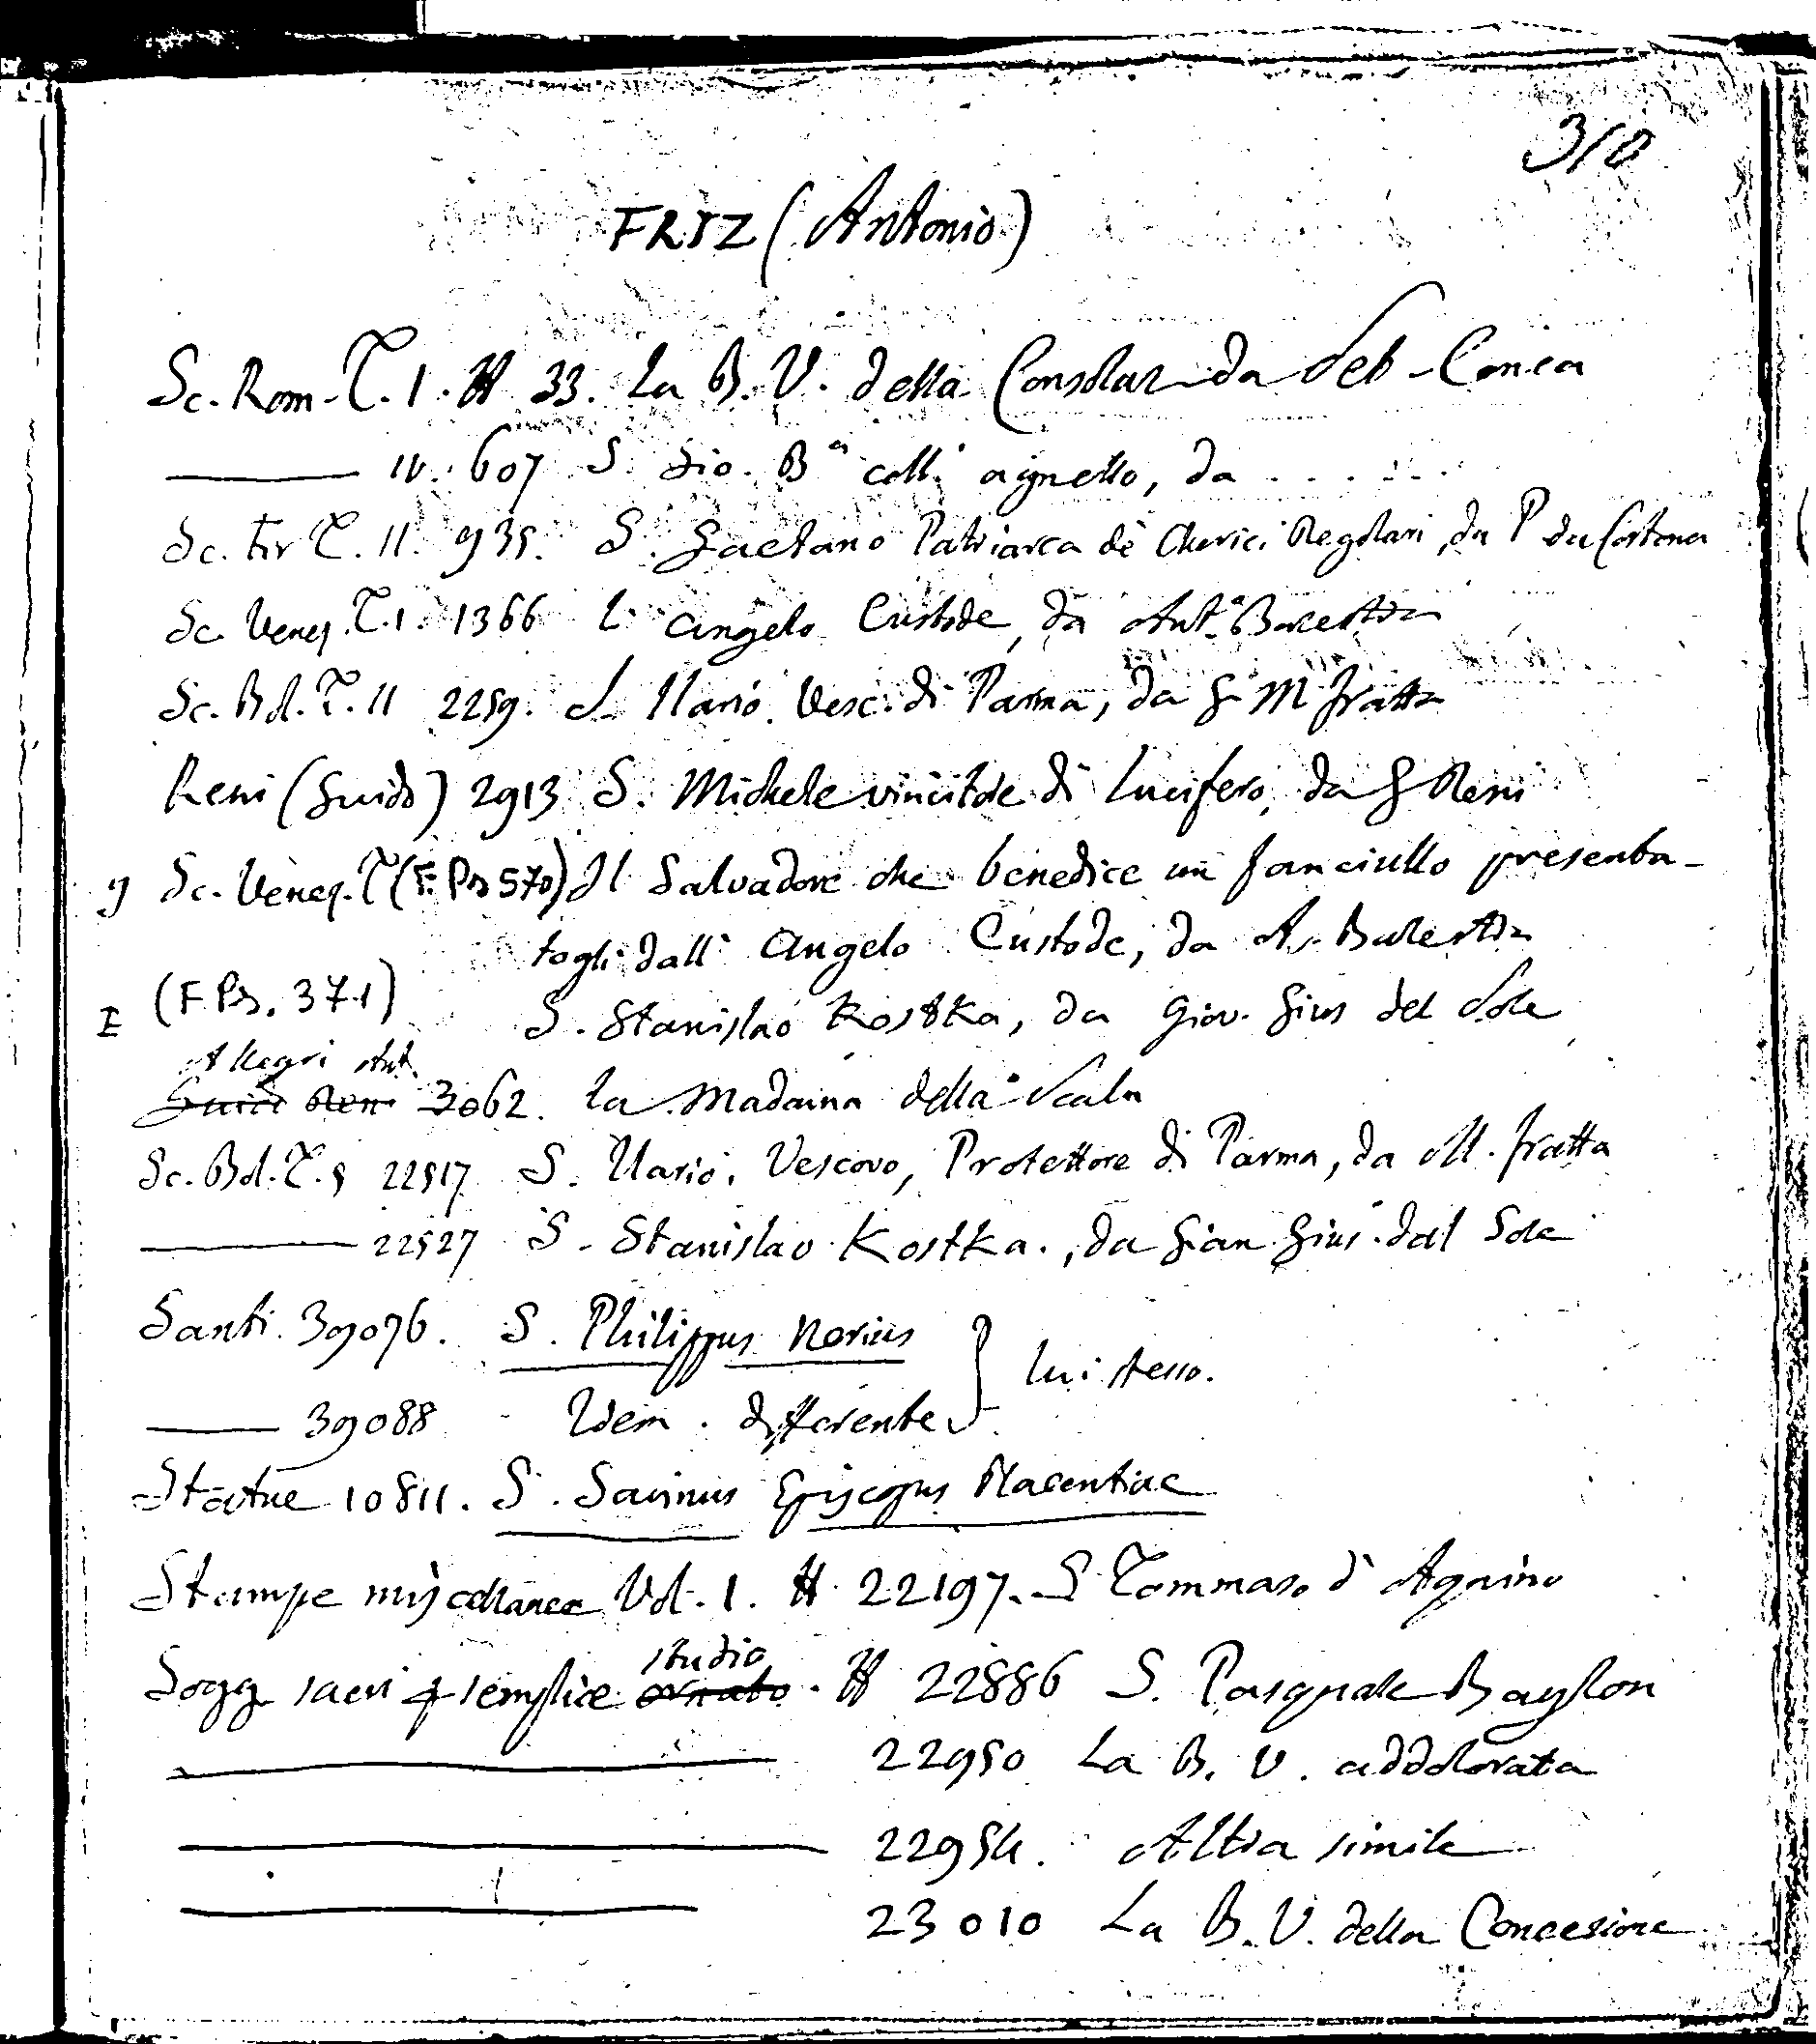 310
FRIZ (Antonio)
Sc. Rom. T. I. N 33. La B. V. della Consolaz. da Seb. Conca
IV. 607 S. Gio. Bª coll' agnello, da . . . . .
Sc. Fir T. II. 935. S. Gaetano Patriarca de' Cherici Regolari, da P da Cortona
Sc. Venez. T. I. 1366 L' angelo Custode, da Ant.º Balestra
Sc. Bol. T. II 2259. S. Ilario Vesc. di Parma, da G. M Fratta
Reni (Guido) 2913 S. Michele vincitore di Lucifero, da G Reni
Sc. Venez. T (F. Ps 570) Il Salvadore che benedice un fanciullo presenta-
togli dall' Angelo Custode, da A. Balestra
I (F Ps. 371) S. Stanislao Kostka, da Giov. Gius del Sole
Allegri Ant.
Guido Reni 3062. La Madonna della Scala
Sc. Bol. T. 5 22517 S. Ilario, Vescovo, Protettore di Parma, da M. Fratta
22527 S. Stanislao Kostka., da Gian Gius. dal Sole
Santi. 39076. S. Philippus Nerius
} lui stesso.
39088 Idem . differente
Statue 10811. S. Savinus Episcopus Placentiae
Stampe miscellanee Vol. I. N 22197. S Tommaso d' Aquino
studio
Sogg. sacri p semplice ornato. N 22886 S. Pasquale Baylon
22950 La B. V. addolorata
22954. Altra simile
23010 La B. V. della Concezione